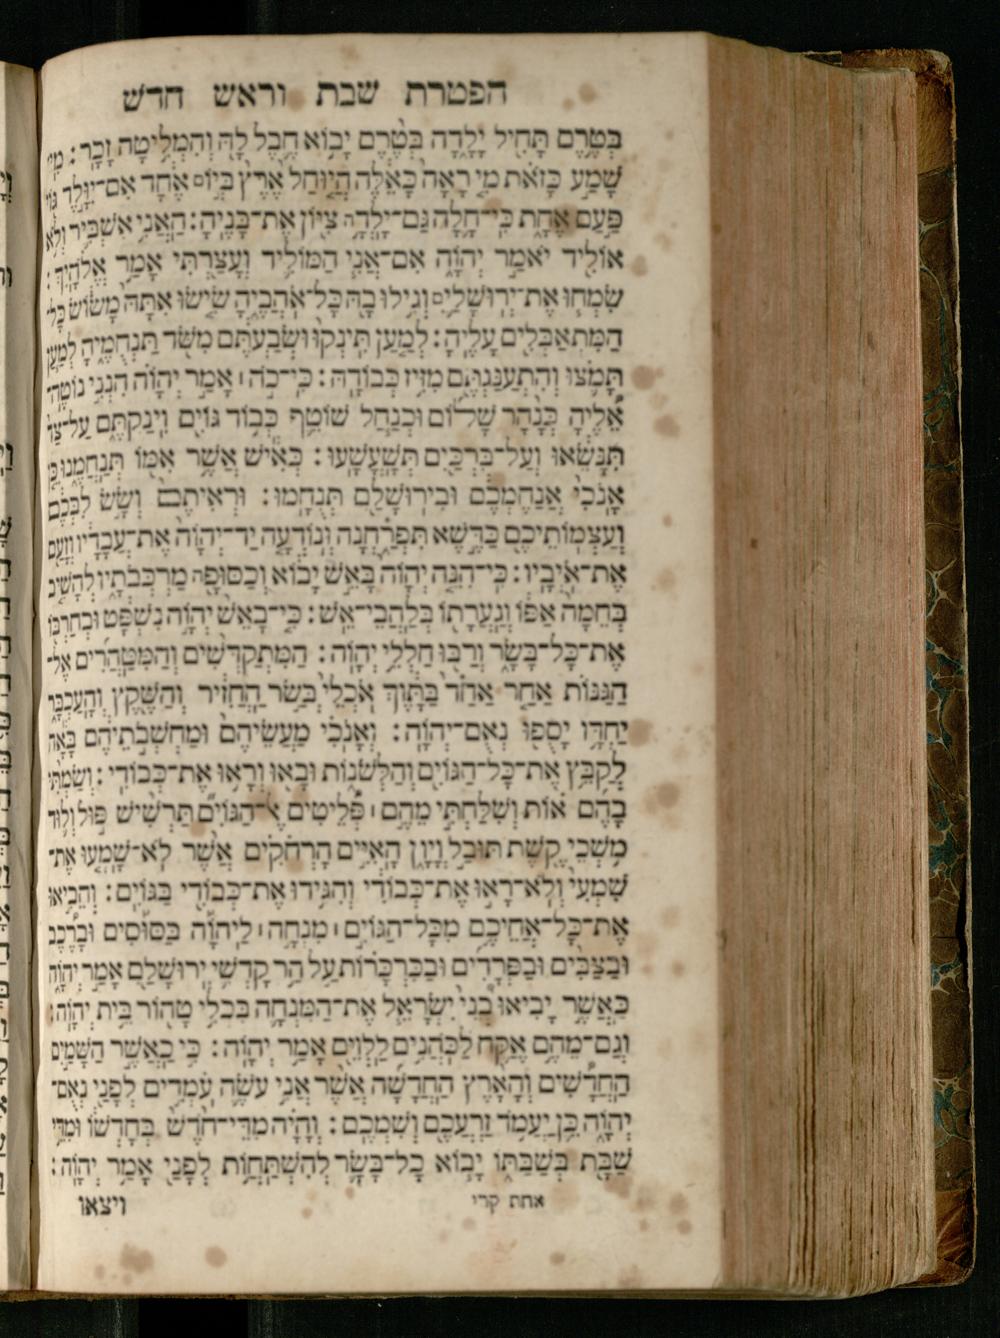 הפטרת שבת וראש חדש
בְּטֶרֶם תָּחִיל יָלָדָה בְּטֶרֶם יָבוֹא חֵבֶל לָהּ וְהִמְלִיטָה זָכָר׃ מִי־
שָׁמַע כָּזֹאת מִי רָאָה כָּאֵלֶּה הֲיוּחַל אֶרֶץ בְּיוֹם אֶחָד אִם־יִוָּלֵד גּוֹי
פַּעַם אֶחָת כִּי־חָלָה גַּם־יָלְדָה צִיּוֹן אֶת־בָּנֶיהָ׃ הַאֲנִי אַשְׁבִּיר וְלֹא
אוֹלִיד יֹאמַר יְהוָֹה אִם־אֲנִי הַמּוֹלִיד וְעָצַרְתִּי אָמַר אֱלֹהָיִךְ׃
שִׂמְחוּ אֶת־יְרוּשָׁלַיִם וְגִילוּ בָהּ כָּל־אֹהֲבֶיהָ שִׂישׂוּ אִתָּהּ מָשׂוֹשׂ כָּל־
הַמִּתְאַבְּלִים עָלֶיהָ׃ לְמַעַן תִּינְקוּ וּשְׂבַעְתֶּם מִשֹּׁד תַּנְחֻמֶיהָ לְמַעַן
תָּמֹצּוּ וְהִתְעַנַּגְתֶּם מִזִּיז כְּבוֹדָהּ׃ כִּי־כֹה ׀ אָמַר יְהוָֹה הִנְנִי נוֹטֶה־
אֵלֶיהָ כְּנָהָר שָׁלוֹם וּכְנַחַל שׁוֹטֵף כְּבוֹד גּוֹיִם וִינַקְתֶּם עַל־צַד
תִּנָּשֵׂאוּ וְעַל־בִּרְכַּיִם תְּשָׁעֳשָׁעוּ׃ כְּאִישׁ אֲשֶׁר אִמּוֹ תְּנַחֲמֶנּוּ כֵּן
אָנֹכִי אֲנַחֶמְכֶם וּבִירוּשָׁלִַם תְּנֻחָמוּ׃ וּרְאִיתֶם וְשָׂשׂ לִבְּכֶם
וְעַצְמוֹתֵיכֶם כַּדֶּשֶׁא תִפְרַחְנָה וְנוֹדְעָה יַד־יְהוָֹה אֶת־עֲבָדָיו וְזָעַם
אֶת־אֹיְבָיו׃ כִּי־הִנֵּה יְהוָֹה בָּאֵשׁ יָבוֹא וְכַסּוּפָה מַרְכְּבֹתָיו לְהָשִׁיב
בְּחֵמָה אַפּוֹ וְגַעֲרָתוֹ בְּלַהֲבֵי־אֵשׁ׃ כִּי־בָאֵשׁ יְהוָֹה נִשְׁפָּט וּבְחַרְבּוֹ
אֶת־כָּל־בָּשָׂר וְרַבּוּ חַלְלֵי יְהוָֹה׃ הַמִּתְקַדְּשִׁים וְהַמִּטַּהֲרִים אֶל־
הַגַּנּוֹת אַחַר אַחַד בַּתָּוֶךְ אֹכְלֵי בְּשַׂר הַחֲזִיר וְהַשֶּׁקֶץ וְהָעַכְבָּר
יַחְדָּו יָסֻפוּ נְאֻם־יְהוָֹה׃ וְאָנֹכִי מַעֲשֵׂיהֶם וּמַחְשְׁבֹתֵיהֶם בָּאָה
לְקַבֵּץ אֶת־כָּל־הַגּוֹיִם וְהַלְּשֹׁנוֹת וּבָאוּ וְרָאוּ אֶת־כְּבוֹדִי׃ וְשַׂמְתִּי
בָהֶם אוֹת וְשִׁלַּחְתִּי מֵהֶם ׀ פְּלֵיטִים אֶל־הַגּוֹיִם תַּרְשִׁישׁ פּוּל וְלוּד
מֹשְׁכֵי קֶשֶׁת תּוּבַל וְיָוָן הָאִיִּים הָרְחֹקִים אֲשֶׁר לֹא־שָׁמְעוּ אֶת־
שִׁמְעִי וְלֹא־רָאוּ אֶת־כְּבוֹדִי וְהִגִּידוּ אֶת־כְּבוֹדִי בַּגּוֹיִם׃ וְהֵבִיאוּ
אֶת־כָּל־אֲחֵיכֶם מִכָּל־הַגּוֹיִם ׀ מִנְחָה ׀ לַיהוָֹה בַּסּוּסִים וּבָרֶכֶב
וּבַצַּבִּים וּבַפְּרָדִים וּבַכִּרְכָּרוֹת עַל הַר קָדְשִׁי יְרוּשָׁלִַם אָמַר יְהוָֹה
כַּאֲשֶׁר יָבִיאוּ בְנֵי יִשְׂרָאֵל אֶת־הַמִּנְחָה בִּכְלִי טָהוֹר בֵּית יְהוָֹה׃
וְגַם־מֵהֶם אֶקַּח לַכֹּהֲנִים לַלְוִיִּם אָמַר יְהוָֹה׃ כִּי כַאֲשֶׁר הַשָּׁמַיִם
הַחֲדָשִׁים וְהָאָרֶץ הַחֲדָשָׁה אֲשֶׁר אֲנִי עֹשֶׂה עֹמְדִים לְפָנַי נְאֻם־
יְהוָֹה כֵּן יַעֲמֹד זַרְעֲכֶם וְשִׁמְכֶם׃ וְהָיָה מִדֵּי־חֹדֶשׁ בְּחָדְשׁוֹ וּמִדֵּי
שַׁבָּת בְּשַׁבַּתּוֹ יָבוֹא כָל־בָּשָׂר לְהִשְׁתַּחֲוֹת לְפָנַי אָמַר יְהוָֹה׃
אחת קרי
ויצאו